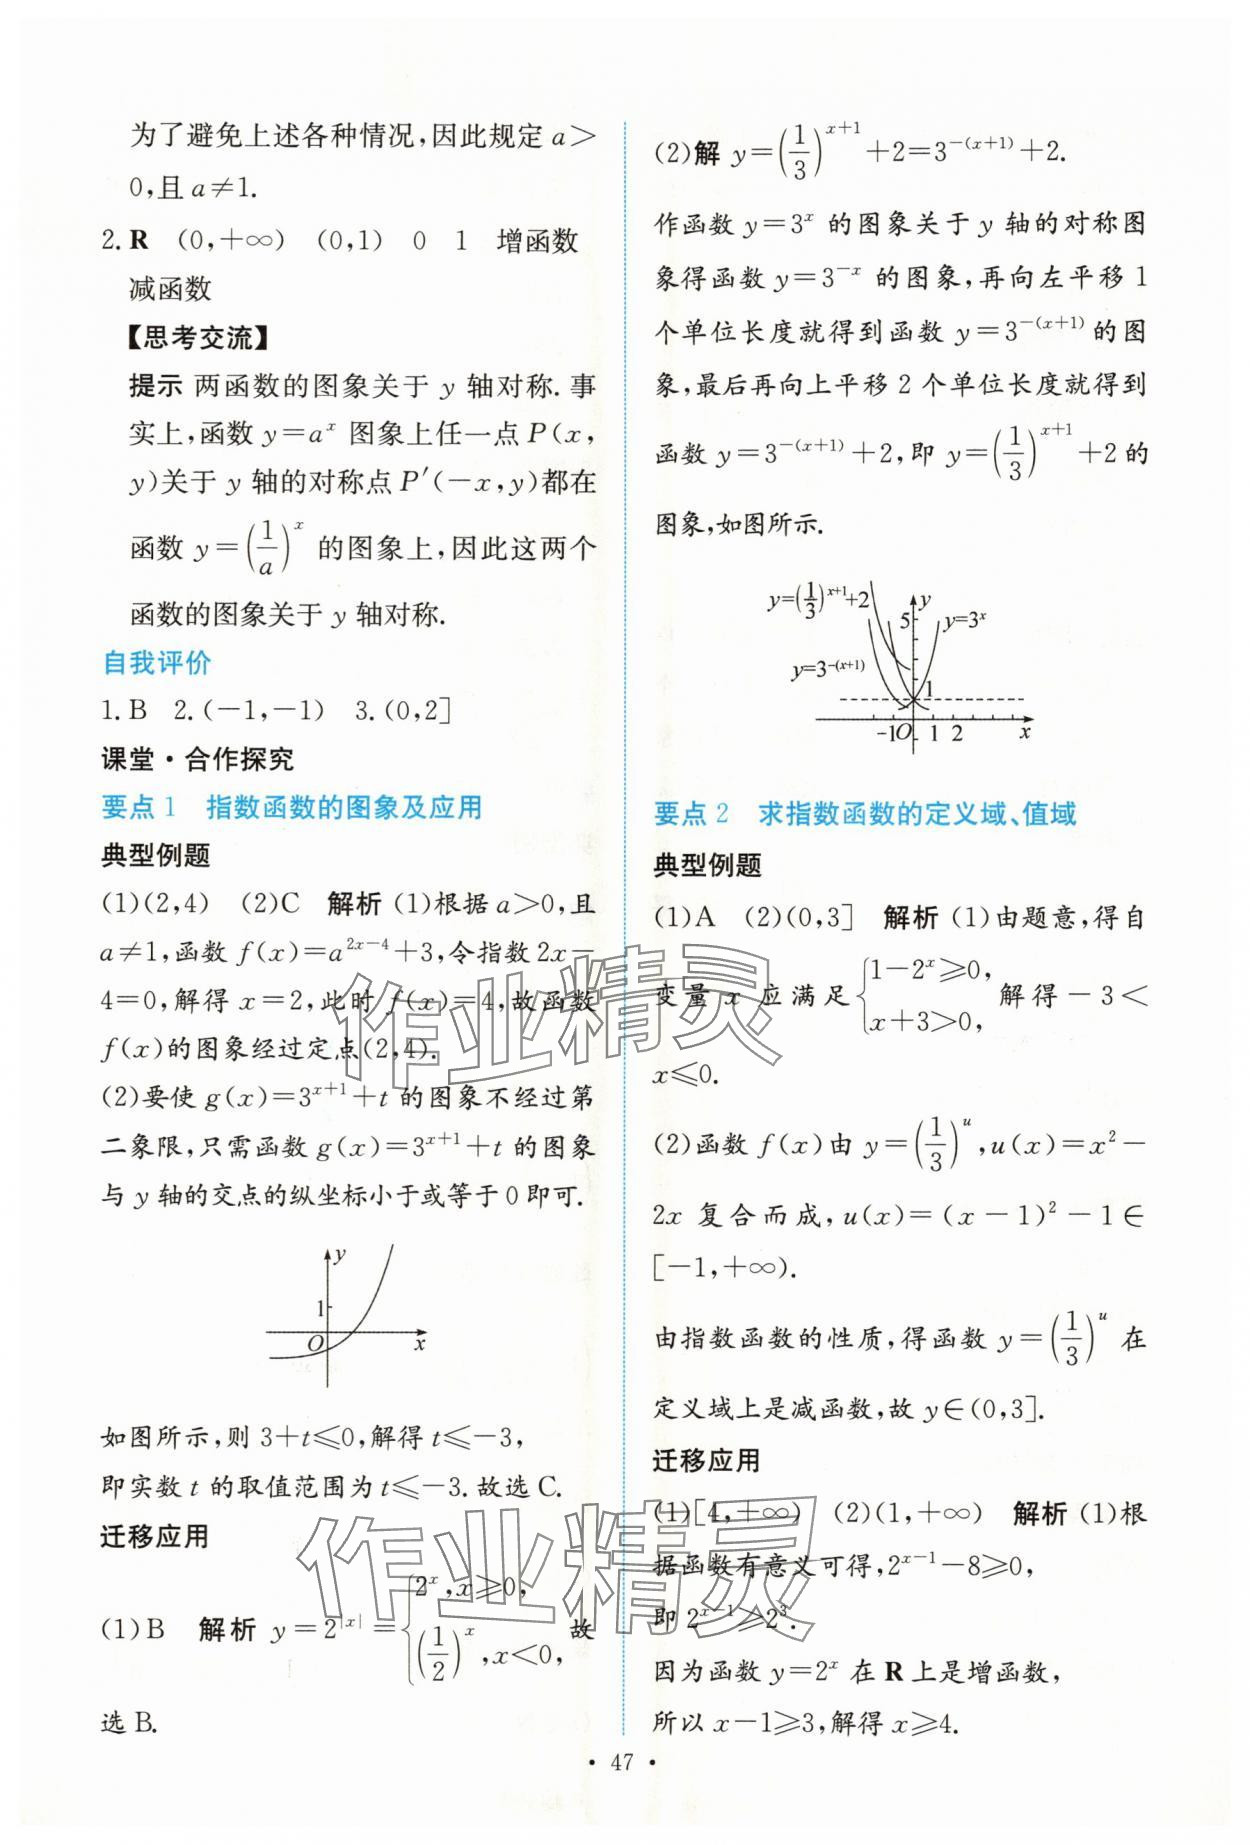 为了避免上述各种情况,因此规定 a>
0,且 a≠1.
2. R (0,+∞) (0,1) 0 1 增函数
减函数
【思考交流】
提示 两函数的图象关于 y 轴对称. 事
实上,函数 y=aˣ 图象上任一点 P(x,
y)关于 y 轴的对称点 P′(-x,y)都在
函数 y=(1/a)ˣ 的图象上,因此这两个
函数的图象关于 y 轴对称.
自我评价
1. B 2. (-1,-1) 3. (0,2]
课堂·合作探究
要点 1 指数函数的图象及应用
典型例题
(1)(2,4) (2)C 解析 (1)根据 a>0,且
a≠1,函数 f(x)=a^{2x-4}+3,令指数 2x-
4=0,解得 x=2,此时 f(x)=4,故函数
f(x)的图象经过定点(2,4).
(2)要使 g(x)=3^{x+1}+t 的图象不经过第
二象限,只需函数 g(x)=3^{x+1}+t 的图象
与 y 轴的交点的纵坐标小于或等于 0 即可.
y
1
O x
如图所示,则 3+t≤0,解得 t≤-3,
即实数 t 的取值范围为 t≤-3. 故选 C.
迁移应用
(1)B 解析 y=2^{|x|}={2ˣ,x≥0, (1/2)ˣ,x<0, 故
选 B.
(2)解 y=(1/3)^{x+1}+2=3^{-(x+1)}+2.
作函数 y=3ˣ 的图象关于 y 轴的对称图
象得函数 y=3^{-x} 的图象,再向左平移 1
个单位长度就得到函数 y=3^{-(x+1)} 的图
象,最后再向上平移 2 个单位长度就得到
函数 y=3^{-(x+1)}+2,即 y=(1/3)^{x+1}+2 的
图象,如图所示.
y=(1/3)^{x+1}+2 y
5 y=3ˣ
y=3^{-(x+1)}
1
-1 O 1 2 x
要点 2 求指数函数的定义域、值域
典型例题
(1)A (2)(0,3] 解析 (1)由题意,得自
变量 x 应满足{1-2ˣ≥0, x+3>0, 解得-3<
x≤0.
(2)函数 f(x)由 y=(1/3)^u,u(x)=x²-
2x 复合而成,u(x)=(x-1)²-1∈
[-1,+∞).
由指数函数的性质,得函数 y=(1/3)^u 在
定义域上是减函数,故 y∈(0,3].
迁移应用
(1)[4,+∞) (2)(1,+∞) 解析 (1)根
据函数有意义可得,2^{x-1}-8≥0,
即 2^{x-1}≥2³.
因为函数 y=2ˣ 在 R 上是增函数,
所以 x-1≥3,解得 x≥4.
· 47 ·
作业精灵
作业精灵